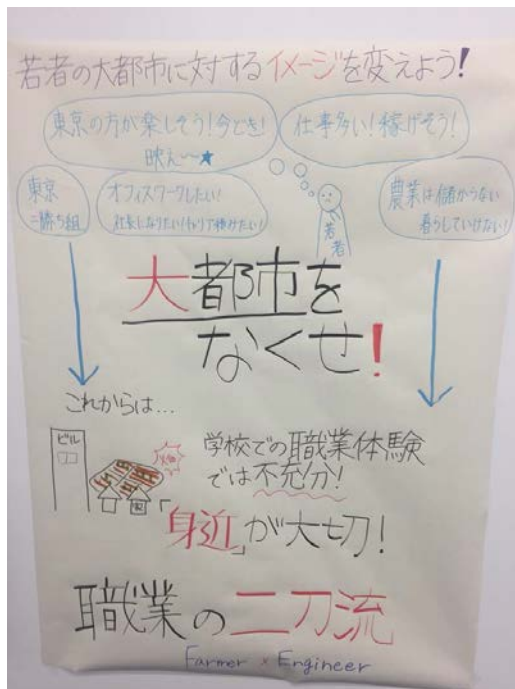 若者の大都市に対するイメージを変えよう!
東京の方が楽しそう!今どき!
映え〜〜★
仕事多い!稼げそう!
東京
=勝ち組
オフィスワークしたい!
社長になりたい!キャリア積みたい!
若者
農業は儲からない
暮らしていけない!
大都市を
なくせ!
これからは...
ビル
学校での職業体験
では不充分!
「身近」が大切!
職業の二刀流
Farmer × Engineer